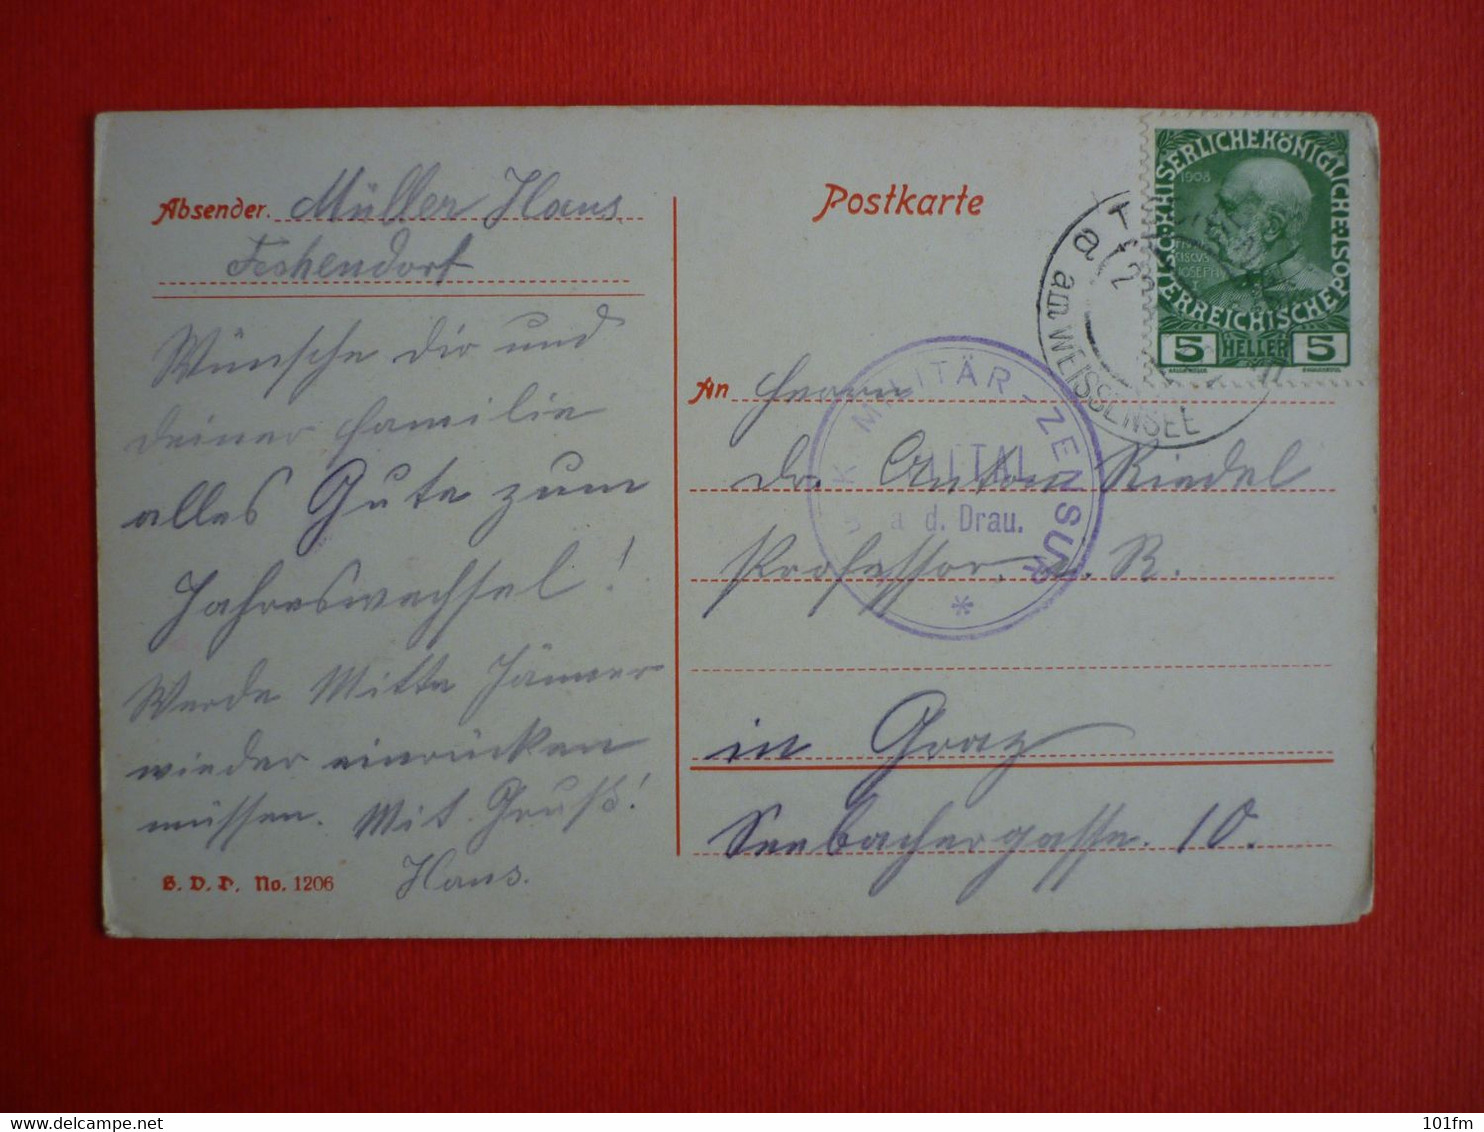 Absender. Müller Hans
Techendorf
Wünsche dir und
deiner Familie
alles Gute zum
Jahreswechsel!
Werde Mitte Jänner
wieder einrücken
müssen. Mit Gruß!
Hans.
B. D. P. No. 1206
Postkarte
KAISERLICHEKÖNIGLICHE
ÖSTERREICHISCHEPOST
1908
5 HELLER 5
am WEISSENSEE
K. MILITÄR-ZENSUR
a. d. Drau.
An Herrn
Dr. Anton Riedel
Professor, i. R.
in Graz
Seebachergasse. 10.
delcampe.net
101fm